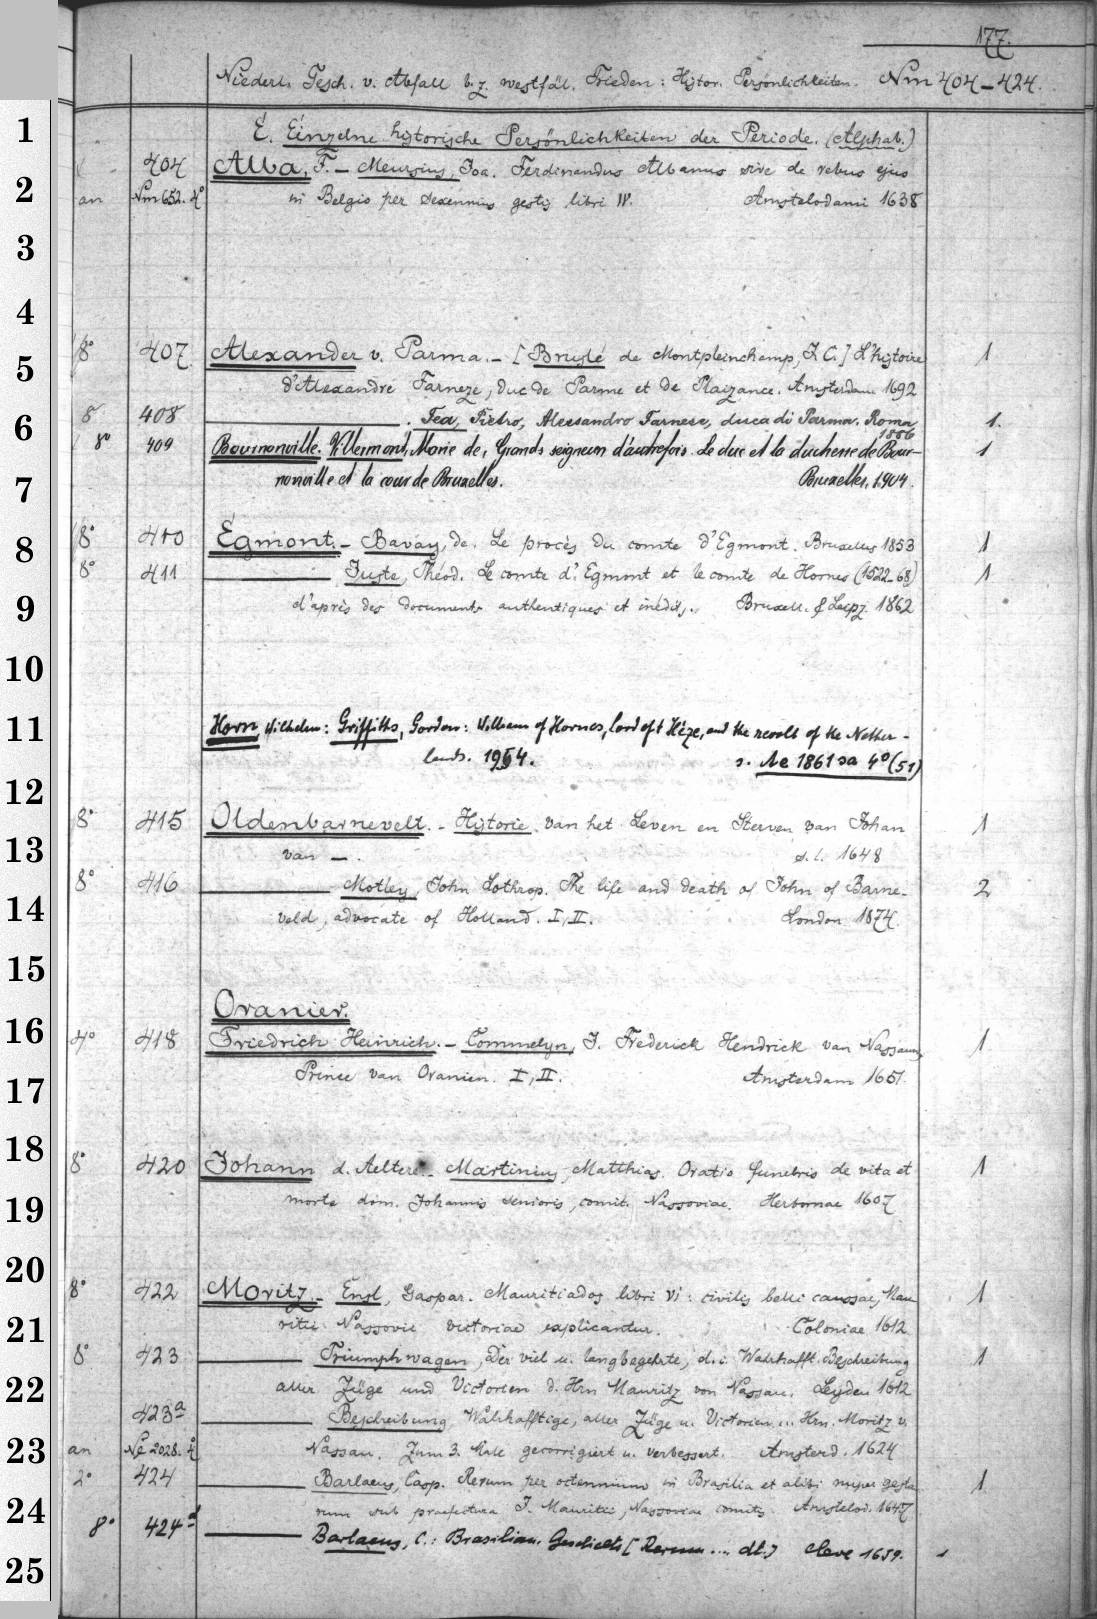 177.
Niederl. Gesch. v. Abfall b. z. westfäl. Frieden: Histor. Persönlichkeiten. Nm 404–424.
1
E. Einzelne historische Persönlichkeiten der Periode. (Alphab.)
404 Alba, F. – Meursius, Joa. Ferdinandus Albanus sive de rebus ejus
2
an Nm 652. 4° in Belgio per sexennius gestis libri IV. Amstelodami 1638
3
4
8° 407. Alexander v. Parma. – [Bruslé de Montpleinchamp, J. C.] L'histoire 1
5
d'Alexandre Farneze, duc de Parme et de Plaizance. Amsterdam 1692
8° 408 ——— . Fea, Pietro, Alessandro Farnese, duca di Parma. Roma 1.
6
1886
8° 409 Bournonville. Villermont, Marie de, Grands seigneurs d'autrefois. Le duc et la duchesse de Bour- 1
nonville et la cour de Bruxelles. Bruxelles, 1904.
7
8° 410 Egmont. – Bavay, de. Le procès du comte d'Egmont. Bruxelles 1853 1
8
8° 411 ——— Juste, Théod. Le comte d'Egmont et le comte de Hornes (1522–68) 1
d'après des documents authentiques et inédits. Bruxell. & Leipz. 1862
9
10
Horn, Wilhelm: Griffiths, Gordon: William of Hornes, lord of Hèze, and the revolt of the Nether-
11
lands. 1954. s. Ae 1861 sa 4° (51)
12
8° 415 Oldenbarnevelt. – Historie van het Leven en Sterven van Johan 1
13
van –. s. l. 1648
8° 416 ——— Motley, John Lothrop. The life and death of John of Barne- 2
14
veld, advocate of Holland. I, II. London 1874.
15
Oranier.
16
4° 418 Friedrich Heinrich. – Commelyn, J. Frederick Hendrick van Nassau, 1
Prince van Oranien. I, II. Amsterdam 1651.
17
18
8° 420 Johann d. Aeltere. – Martinius, Matthias. Oratio funebris de vita et 1
morte dom. Johannis senioris, comit. Nassoviae. Herbornae 1607
19
20
8° 422 Moritz. – Ensl, Gaspar. Mauritiados libri VI: civilis belli caussae, Mau- 1
ritii Nassovii victoriae explicantur. Coloniae 1612
21
8° 423 ——— Triumphwagen, Der viel u. langbegehrte, d. i. Wahrhafft. Beschreibung 1
aller Züge und Victorien d. Hrn Mauritz von Nassau. Leyden 1612
22
423a ——— Beschreibung, Wahrhafftige, aller Züge u. Victorien ... Hrn. Moritz v.
an Ne 2028. 4° Nassau. Zum 3. Male gecorrigiert u. verbessert. Amsterd. 1624
23
2° 424 ——— Barlaeus, Casp. Rerum per octennium in Brasilia et alibi nuper gesta- 1
rum sub praefectura J. Mauritii, Nassoviae comitis. Amstelod. 1647
24
8° 424a ——— Barlaeus, C.: Brasilian. Geschichte [Rerum .... dt.] Cleve 1659.
25